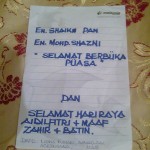 EN. SHAIKH PAN
EN. MOHD. SHAZNI
"SELAMAT BERBUKA
PUASA"
DAN
SELAMAT HARI RAYA
AIDILFITRI + MAAF
ZAHIR + BATIN.